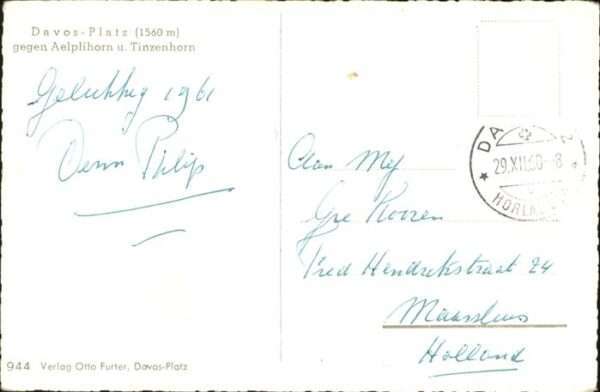 Davos-Platz (1560 m)
gegen Aelplihorn u. Tinzenhorn
Gelukkig 1961
Philip
Aan Mej
Gre
Fred Hendrikstraat 24
Maassluis
Holland
DA
29.XII.60-8
HÖRLA
944 Verlag Otto Furter, Davos-Platz